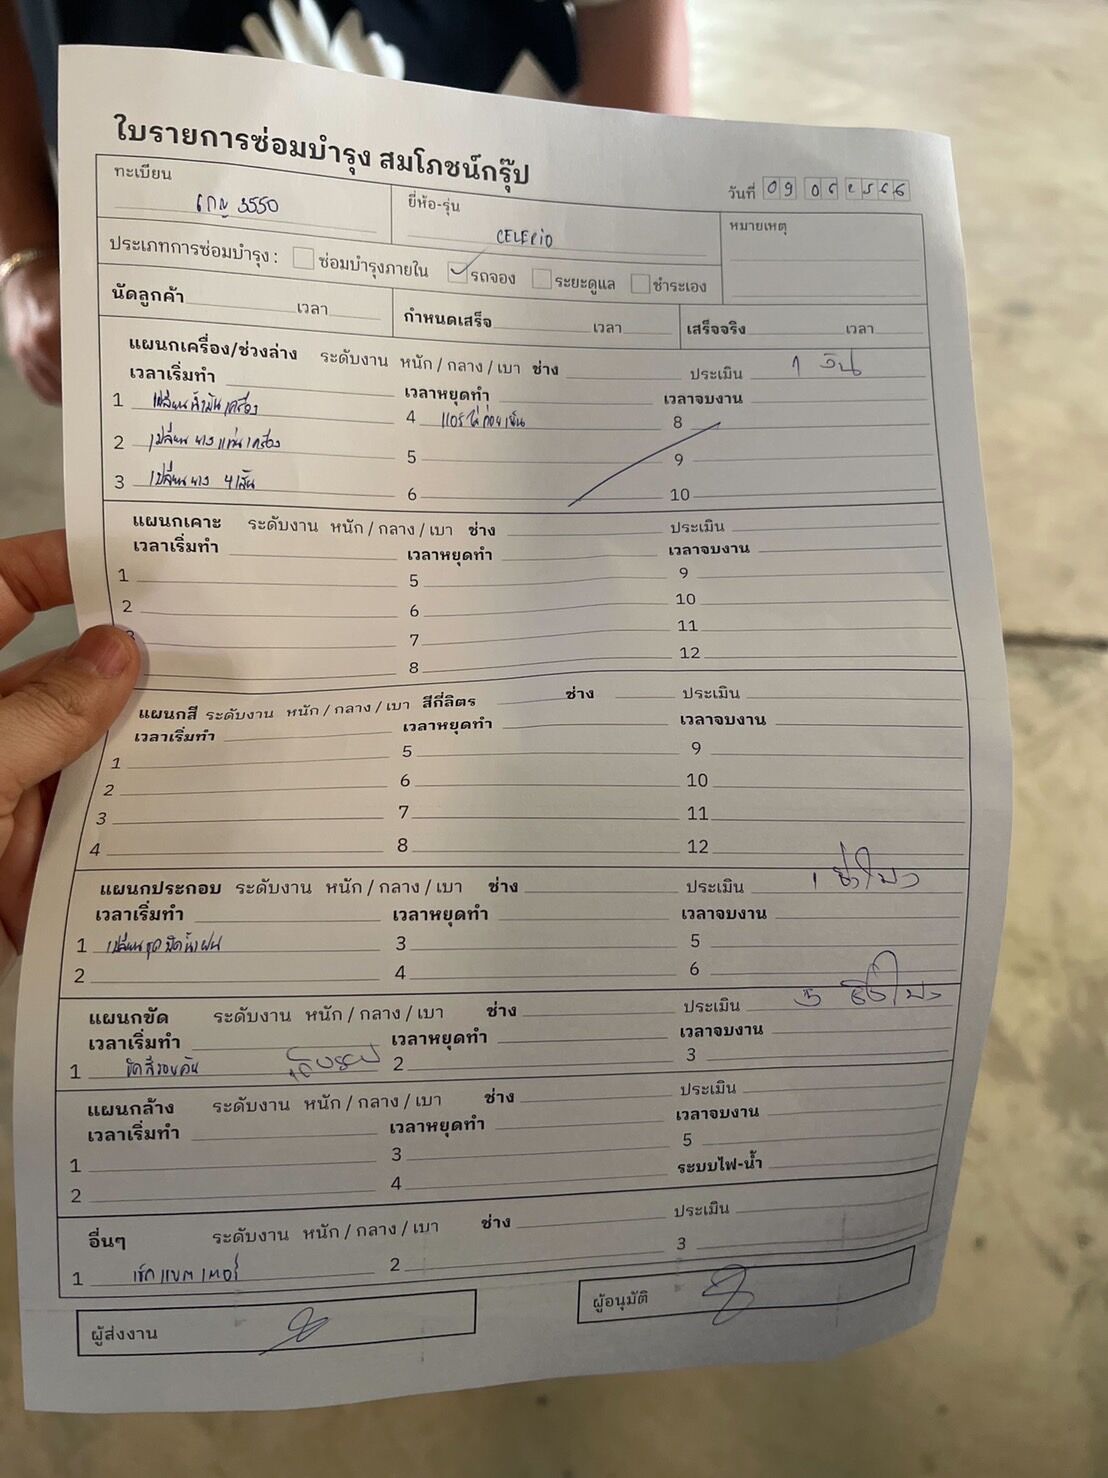 ใบรายการซ่อมบำรุง สมโภชน์กรุ๊ป
วันที่ 09 06 2566
ทะเบียน 3550
ยี่ห้อ-รุ่น CELERIO
หมายเหตุ
ประเภทการซ่อมบำรุง : ซ่อมบำรุงภายใน รถจอง ระยะดูแล ชำระเอง
นัดลูกค้า เวลา กำหนดเสร็จ เวลา เสร็จจริง เวลา
แผนกเครื่อง/ช่วงล่าง ระดับงาน หนัก / กลาง / เบา ช่าง ประเมิน 1 วัน
เวลาเริ่มทำ เวลาหยุดทำ เวลาจบงาน
1 เปลี่ยนน้ำมันเครื่อง 4 แอร์ไม่ค่อยเย็น 8
2 เปลี่ยนยางแท่นเครื่อง 5 9
3 เปลี่ยนยาง 4 เส้น 6 10
แผนกเคาะ ระดับงาน หนัก / กลาง / เบา ช่าง ประเมิน
เวลาเริ่มทำ เวลาหยุดทำ เวลาจบงาน
1 5 9
2 6 10
3 7 11
8 12
แผนกสี ระดับงาน หนัก / กลาง / เบา สีกี่ลิตร ช่าง ประเมิน
เวลาเริ่มทำ เวลาหยุดทำ เวลาจบงาน
1 5 9
2 6 10
3 7 11
4 8 12
แผนกประกอบ ระดับงาน หนัก / กลาง / เบา ช่าง ประเมิน 1 ชั่วโมง
เวลาเริ่มทำ เวลาหยุดทำ เวลาจบงาน
1 เปลี่ยนชุดปัดน้ำฝน 3 5
2 4 6
แผนกขัด ระดับงาน หนัก / กลาง / เบา ช่าง ประเมิน 3 ชั่วโมง
เวลาเริ่มทำ เวลาหยุดทำ เวลาจบงาน
1 ขัดสีรอบคัน 2 3
แผนกล้าง ระดับงาน หนัก / กลาง / เบา ช่าง ประเมิน
เวลาเริ่มทำ เวลาหยุดทำ เวลาจบงาน
1 3 5
2 4 ระบบไฟ-น้ำ
อื่นๆ ระดับงาน หนัก / กลาง / เบา ช่าง ประเมิน
1 เช็คแบตเตอรี่ 2 3
ผู้ส่งงาน ผู้อนุมัติ